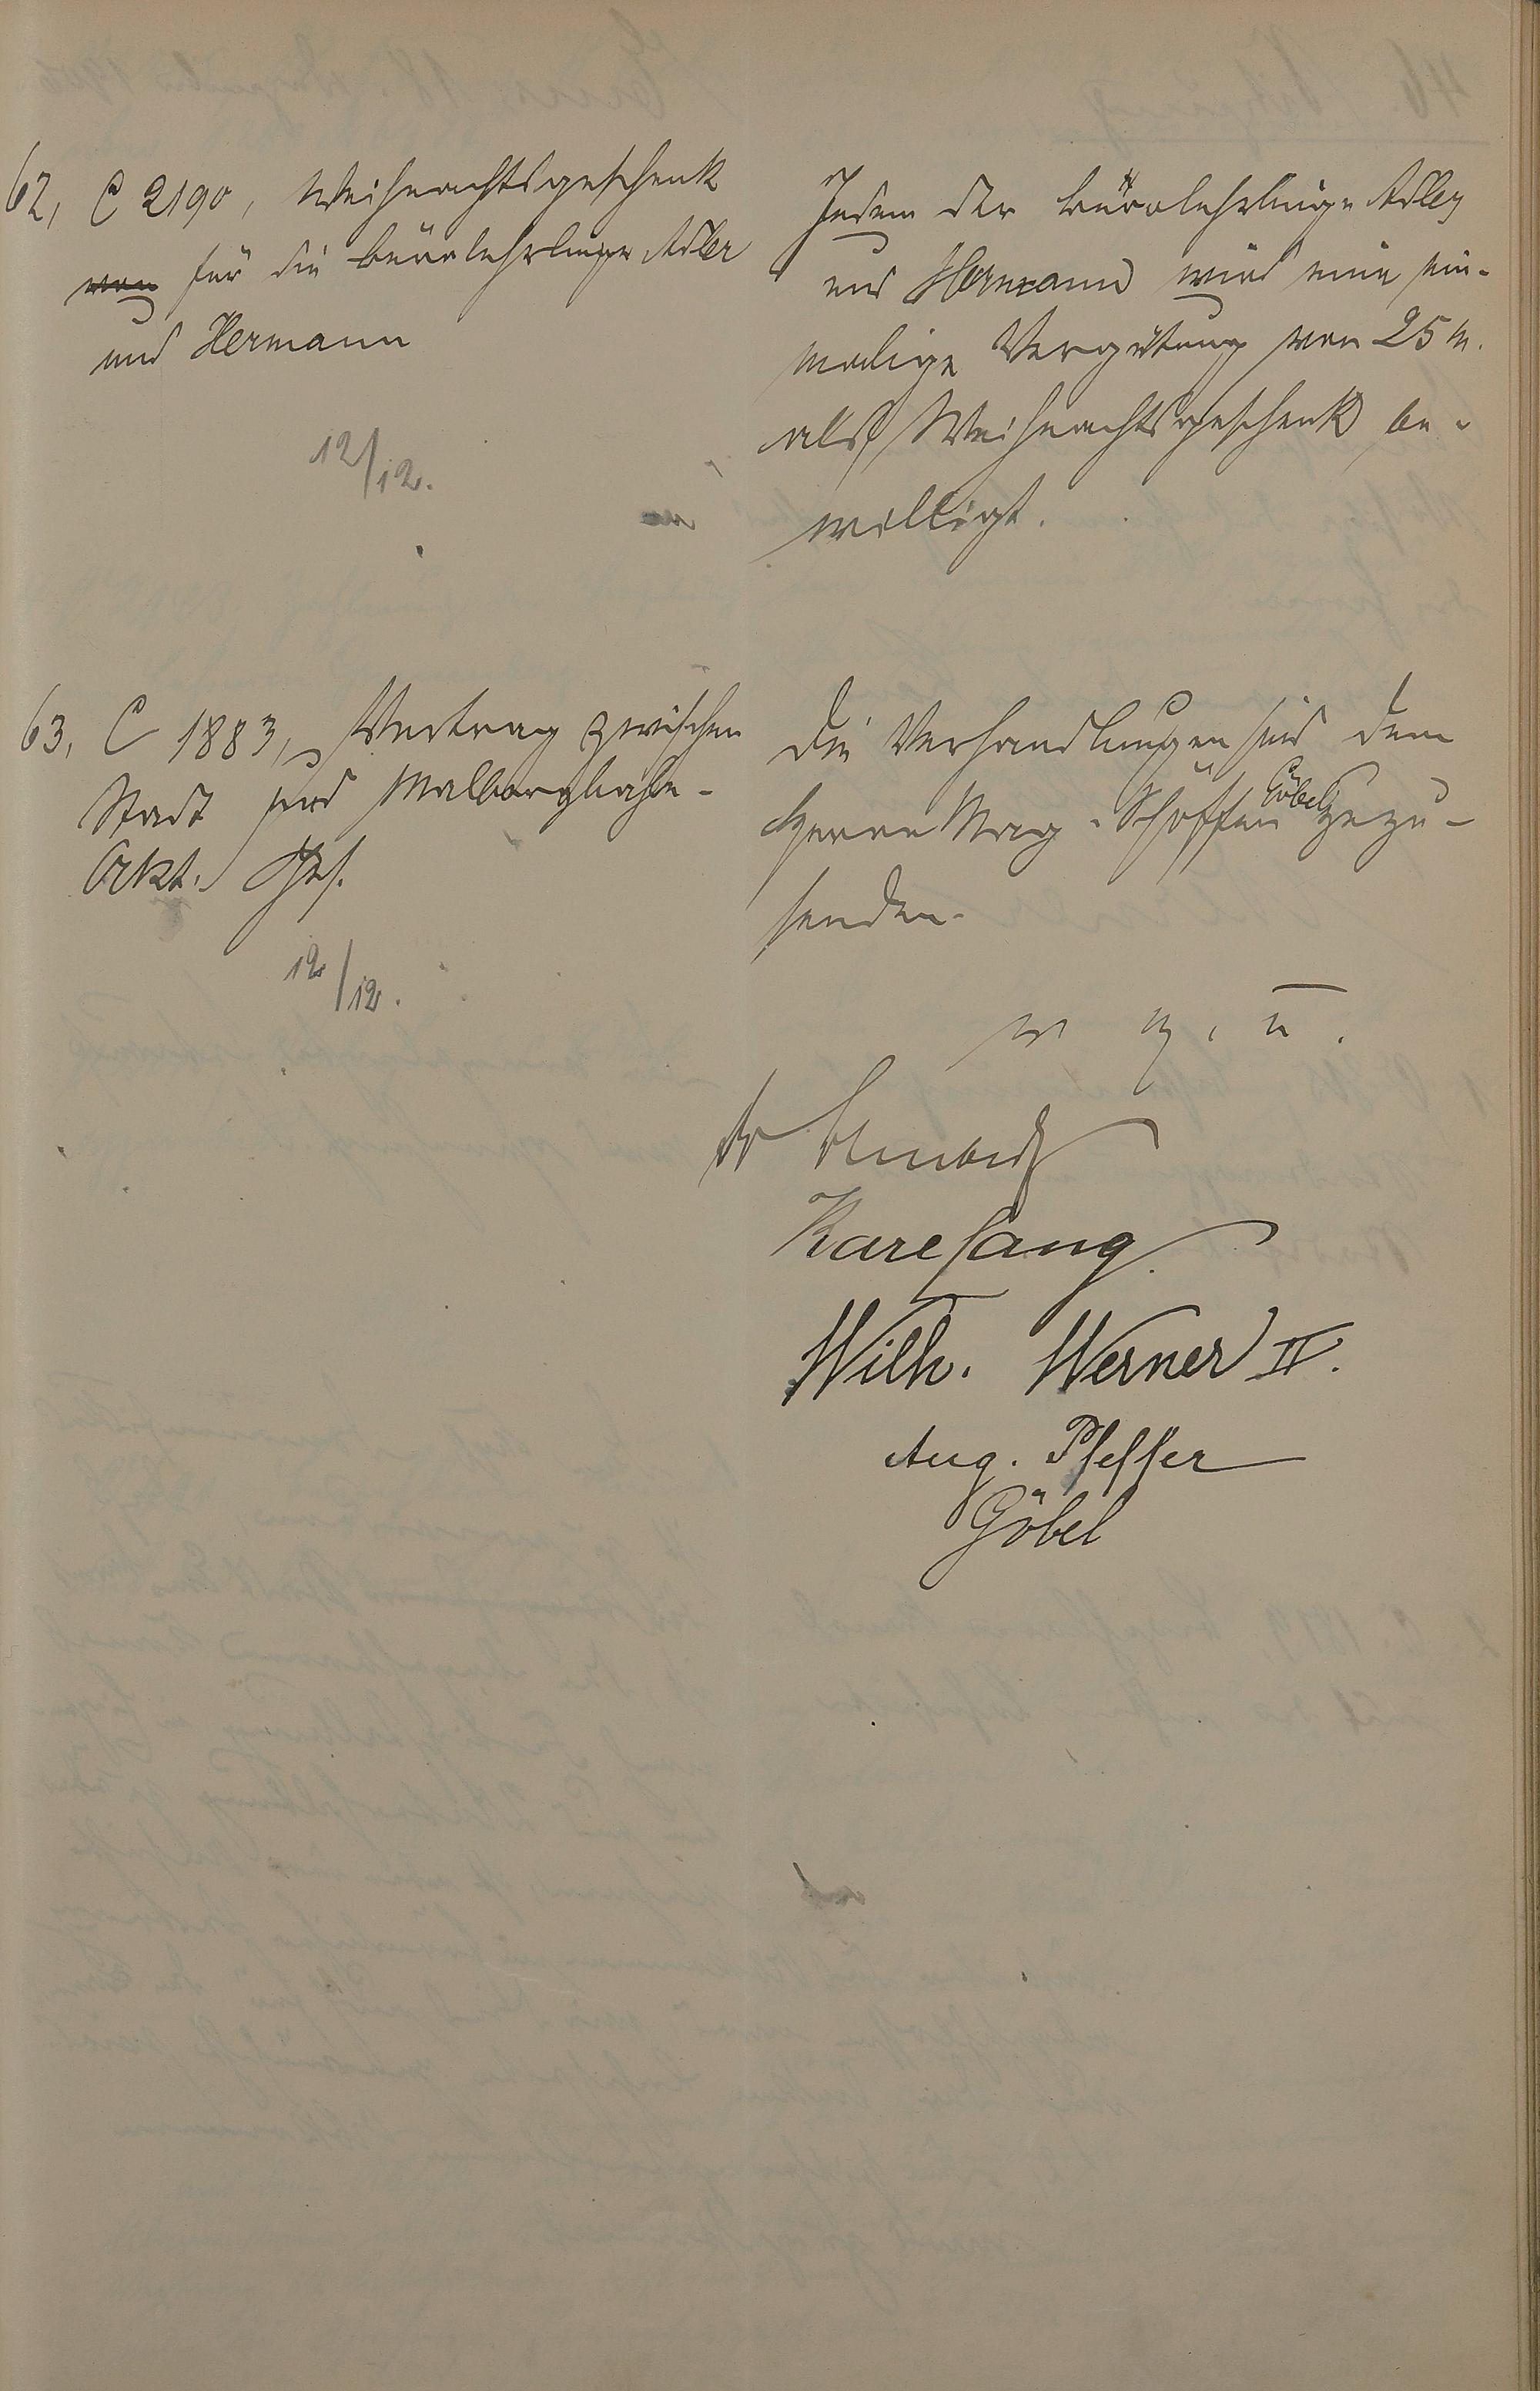 62, C 2190, Weihnachtsgeschenk
von für die Bürolehrlinge Adler
und Hermann
12/12.
Jedem der Bürolehrlinge Adler
und Hermann wird eine ein-
malige Vergütung von 25 M.
als Weihnachtsgeschenk be-
willigt.
63, C 1883, Vertrag zwischen
Stadt und Malbergbahn-
Akt. Ges.
12/12.
Die Verhandlungen sind dem
Herrn Mag. Schöffen Göbel zuzu-
senden.
v. g. u.
Dr
Karl Lang
Wilh. Werner II.
Aug. Pfeffer
Göbel